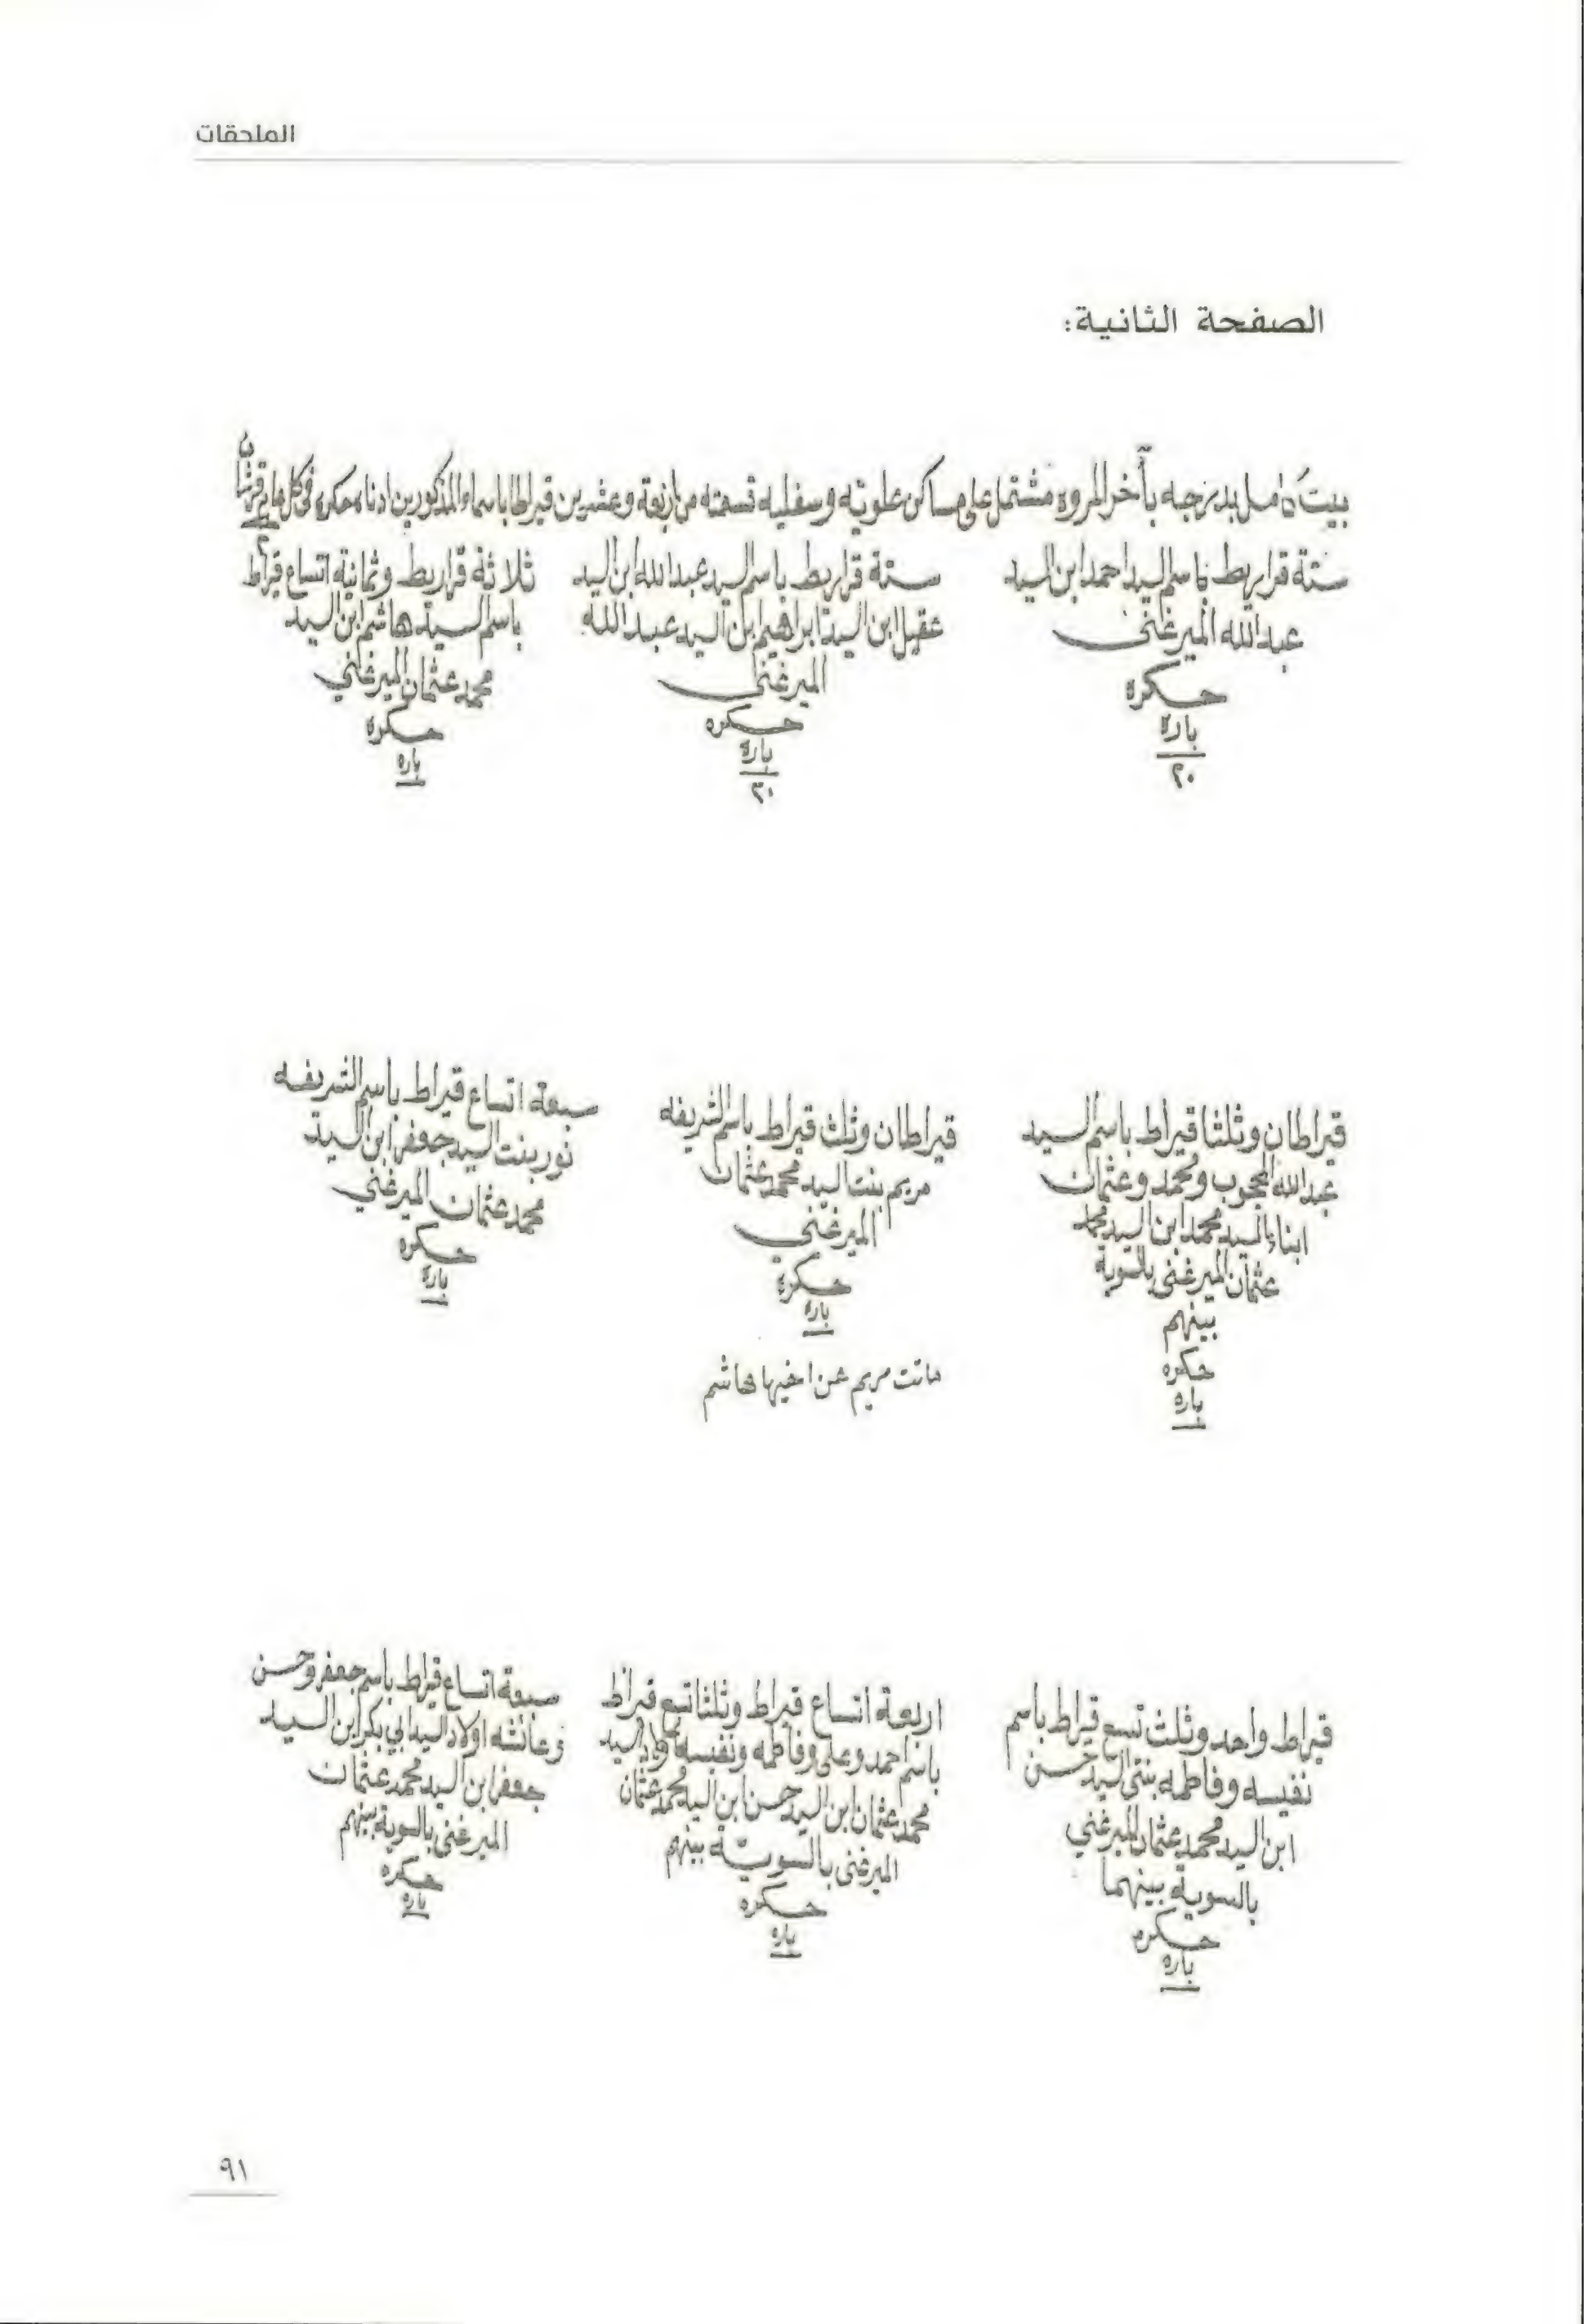 الملحقات
الصفحة الثانية:
بيت كامل بدرجه بأخر المروه مشتمل على مساكن علويه وسفليه قسمته من اربعة وعشرين قيراطا باسماء المذكورين ادناه حكره في كل عام قرشان
٢
ستة قراريط باسم السيد احمد ابن السيد
عبدالله الميرغنى
حكرة
بارة
٢٠
ستة قراريط باسم السيد عبدالله ابن السيد
عقيل ابن السيد ابراهيم ابن السيد عبدالله
الميرغنى
حكره
بارة
٢٠
ثلاثة قراريط وثمانية اتساع قيراط
باسم السيد هاشم ابن السيد
محمد عثمان الميرغني
حكرة
باره
قيراطان وثلثا قيراط باسم السيد
عبدالله المحجوب ومحمد وعثمان
ابناء السيد محمد ابن السيد محمد
عثمان الميرغنى بالسوية
بينهم
حكره
باره
قيراطان وثلث قيراط باسم الشريفه
مريم بنت السيد محمد عثمان
الميرغني
حكرة
بارة
ماتت مريم عن اخيها هاشم
سبعة اتساع قيراط باسم الشريفه
نور بنت السيد جعفر ابن السيد
محمد عثمان الميرغني
حكره
بارة
قيراط واحد وثلث تسع قيراط باسم
نفيسه وفاطمه بنتى السيد حسن
ابن السيد محمد عثمان الميرغني
بالسوية بينهما
حكره
باره
اربعة اتساع قيراط وثلثا تسع قيراط
باسم احمد وعلى وفاطمه ونفيسه اولاد السيد
محمد عثمان ابن السيد حسن ابن السيد محمد عثمان
الميرغنى بالسويّة بينهم
حكره
باره
سبعة اتساع قيراط باسم جعفر وحسن
وعائشه اولاد السيد ابي بكر ابن السيد
جعفر ابن السيد محمد عثمان
الميرغنى بالسوية بينهم
حكره
باره
٩١